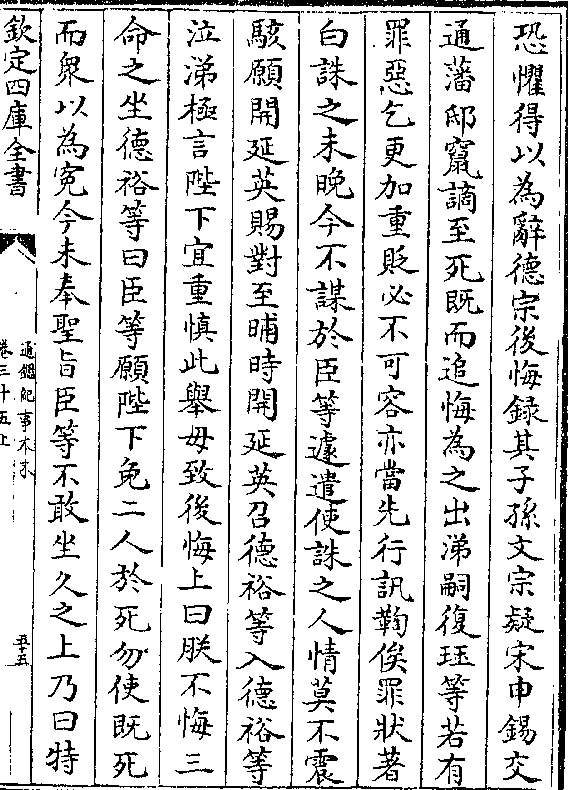 恐懼得以為辭德宗後悔録其子孫文宗疑宋申錫交
通藩邸竄謫至死既而追悔為之出涕嗣復珏等若有
罪惡乞更加重貶必不可容亦當先行訊鞫俟罪狀著
白誅之未晚今不謀於臣等遽遣使誅之人情莫不震
駭願開延英賜對至晡時開延英召德裕等入德裕等
泣涕極言陛下宜重慎此舉毋致後悔上曰朕不悔三
命之坐德裕等曰臣等願陛下免二人於死勿使既死
而衆以為寃今未奉聖旨臣等不敢坐久之上乃曰特
欽定四庫全書
通鑑紀事本末
卷三十五上
五十五